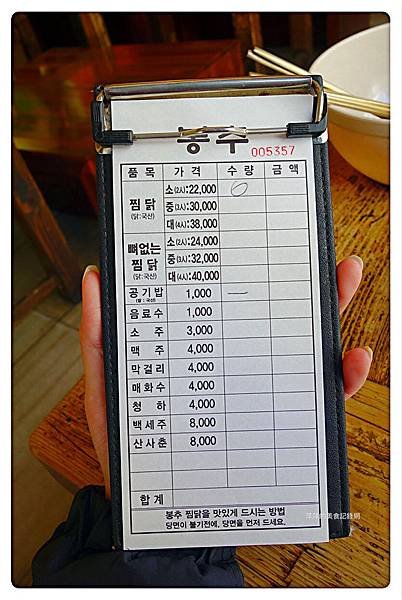 봉추
005357
품목 가격 수량 금액
찜닭 (닭:국산) 소(2人):22,000
중(3人):30,000
대(4人):38,000
뼈없는 찜닭 (닭:국산) 소(2人):24,000
중(3人):32,000
대(4人):40,000
공기밥 (쌀:국산) 1,000
음료수 1,000
소주 3,000
맥주 4,000
막걸리 4,000
매화수 4,000
청하 4,000
백세주 8,000
산사춘 8,000
합계
봉추 찜닭을 맛있게 드시는 방법
당면이 불기전에, 당면을 먼저 드세요.